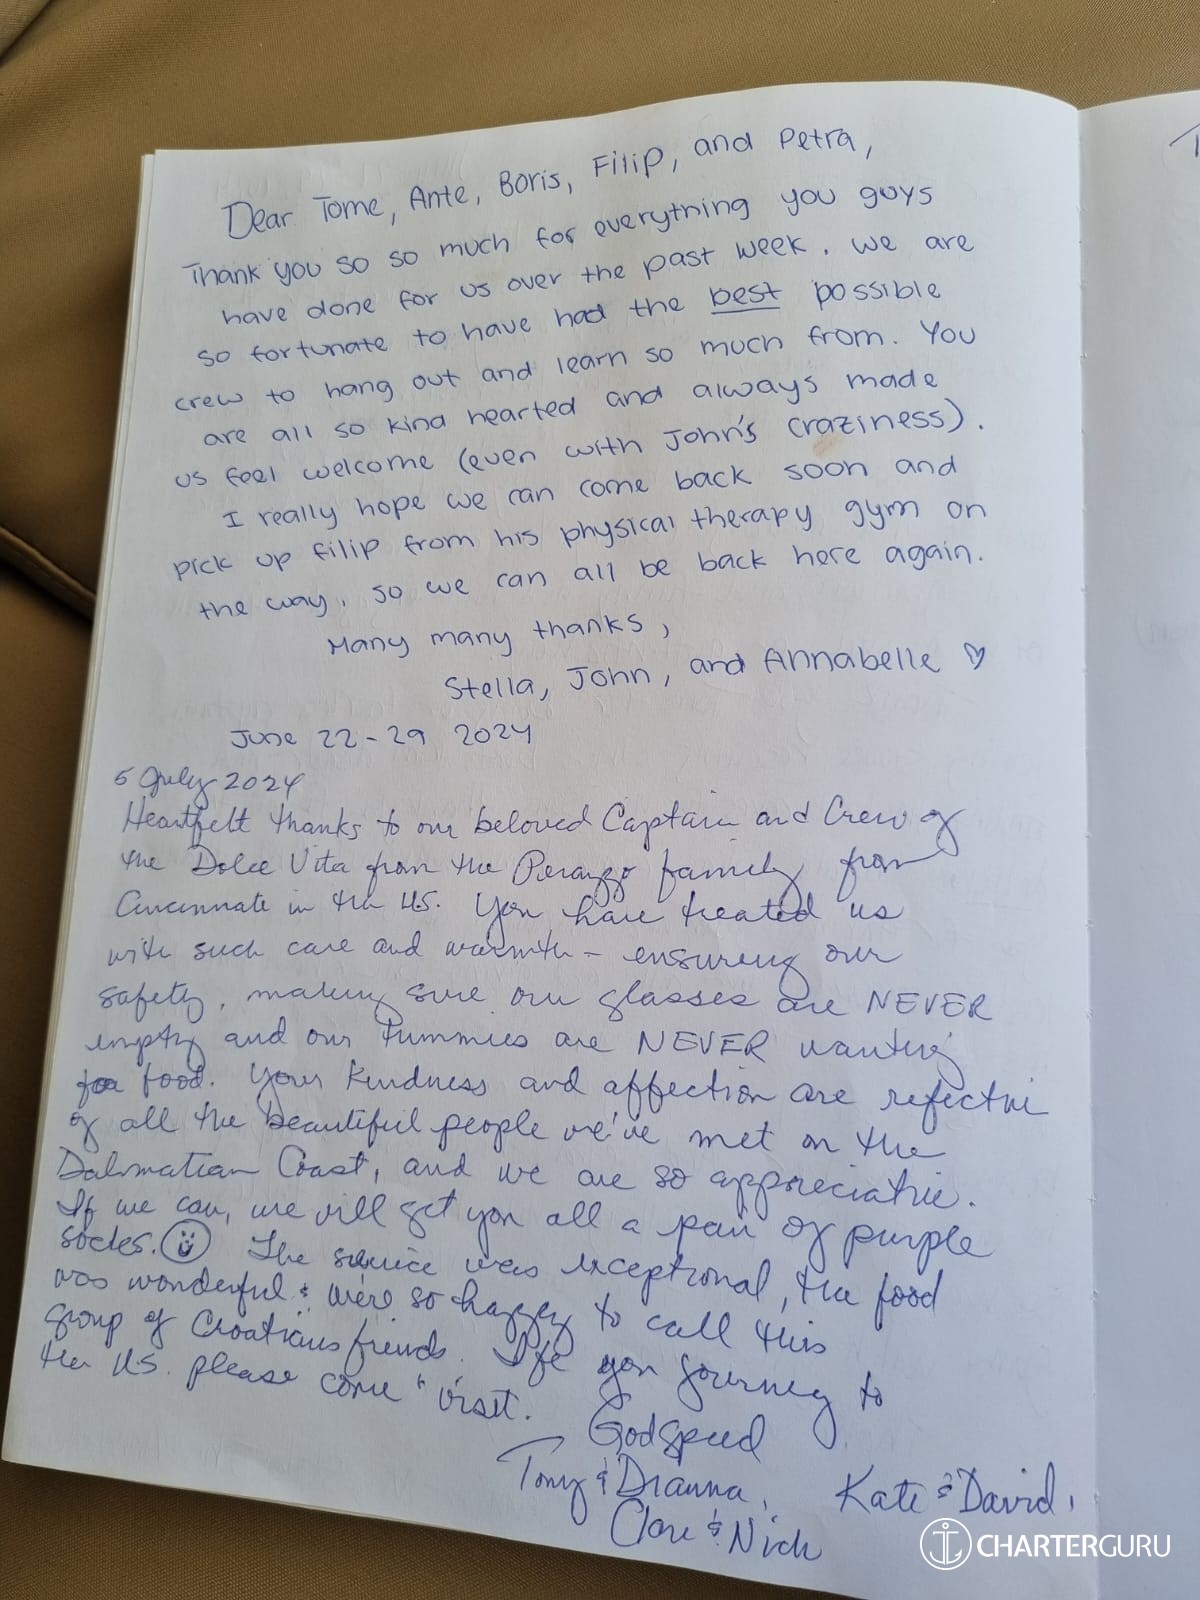 Dear Tome, Ante, Boris, Filip, and Petra,
Thank you so so much for everything you guys
have done for us over the past week. We are
so fortunate to have had the best possible
crew to hang out and learn so much from. You
are all so kind hearted and always made
us feel welcome (even with John's craziness).
I really hope we can come back soon and
pick up Filip from his physical therapy gym on
the way, so we can all be back here again.
Many many thanks,
Stella, John, and Annabelle ♡
June 22-29 2024
5 July 2024
Heartfelt thanks to our beloved Captain and Crew of
the Dolce Vita from the family from
Cincinnati in the U.S. You have treated us
with such care and warmth - ensuring our
safety, making sure our glasses are NEVER
empty and our tummies are NEVER wanting
for food. Your kindness and affection are
of all the beautiful people we've met on the
Dalmatian Coast, and we are so appreciative.
If we can, we will get you all a pair of purple
socks. The service was exceptional, the food
was wonderful & we're so happy to call this
group of Croatians friends. If you journey to
the U.S. please come visit.
Godspeed
Tony & Dianna, Kate & David,
Clare & Nick
CHARTERGURU